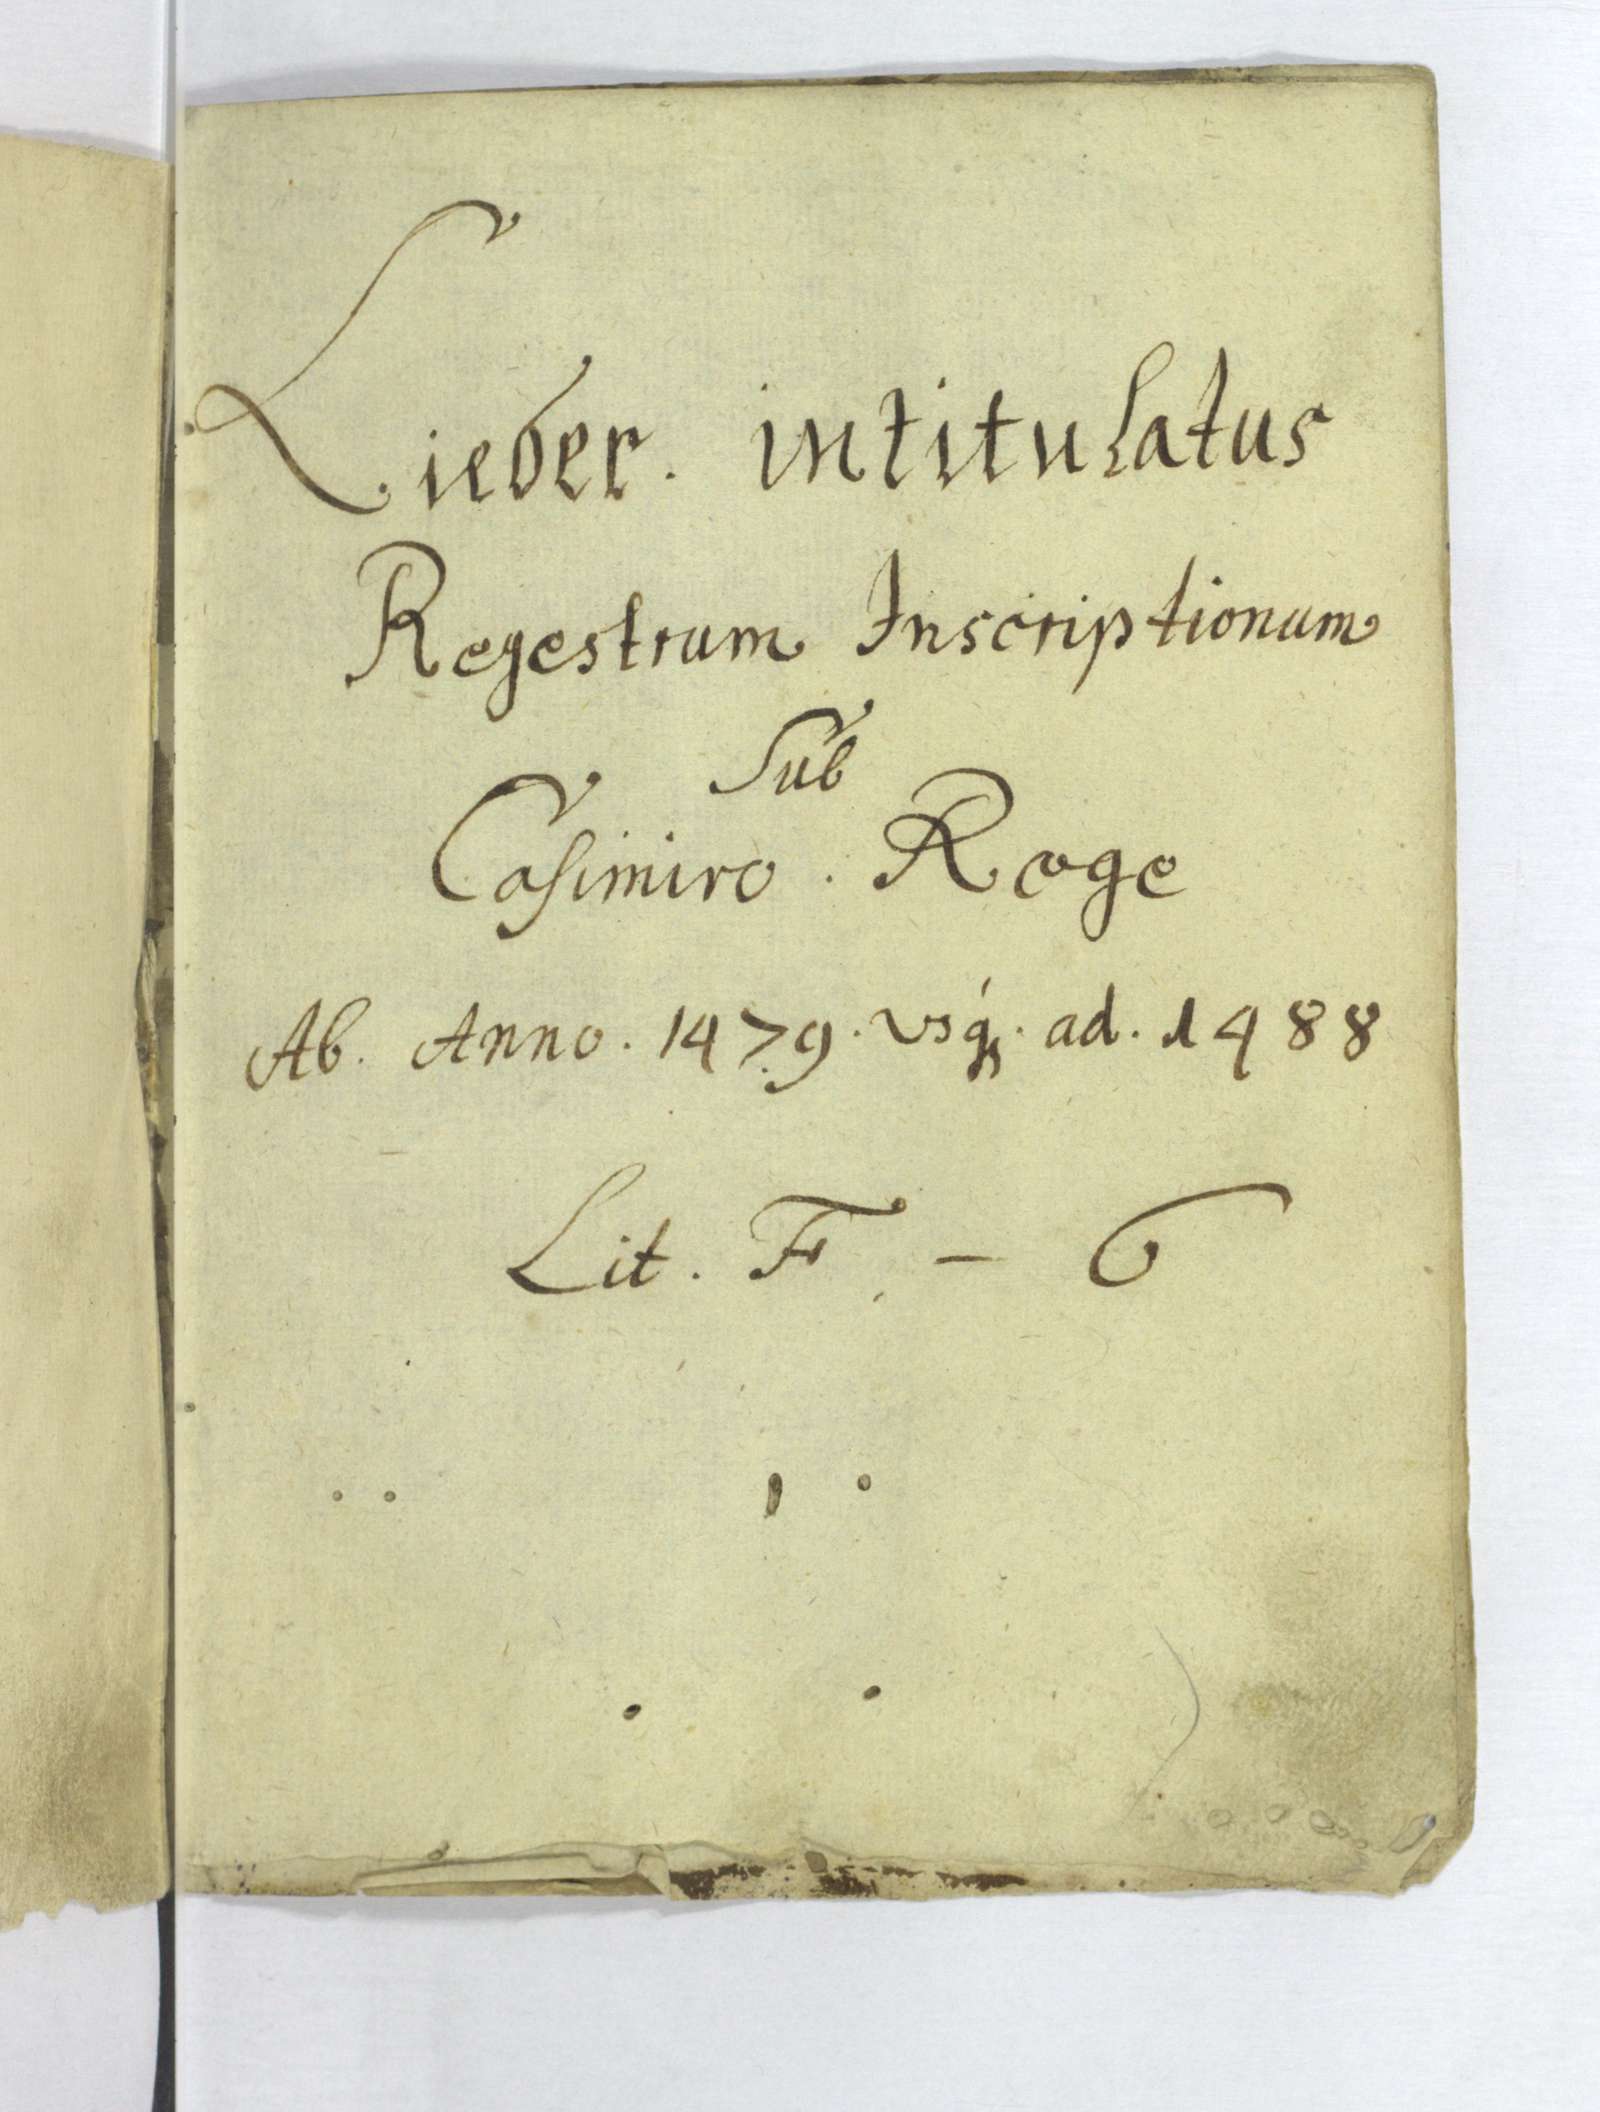 Lieber. intitulatus
Regestrum Inscriptionum
Sub
Casimiro. Rege
Ab. Anno. 1479. Vsq́ꝫ. ad. 1488
Lit. F. – 6